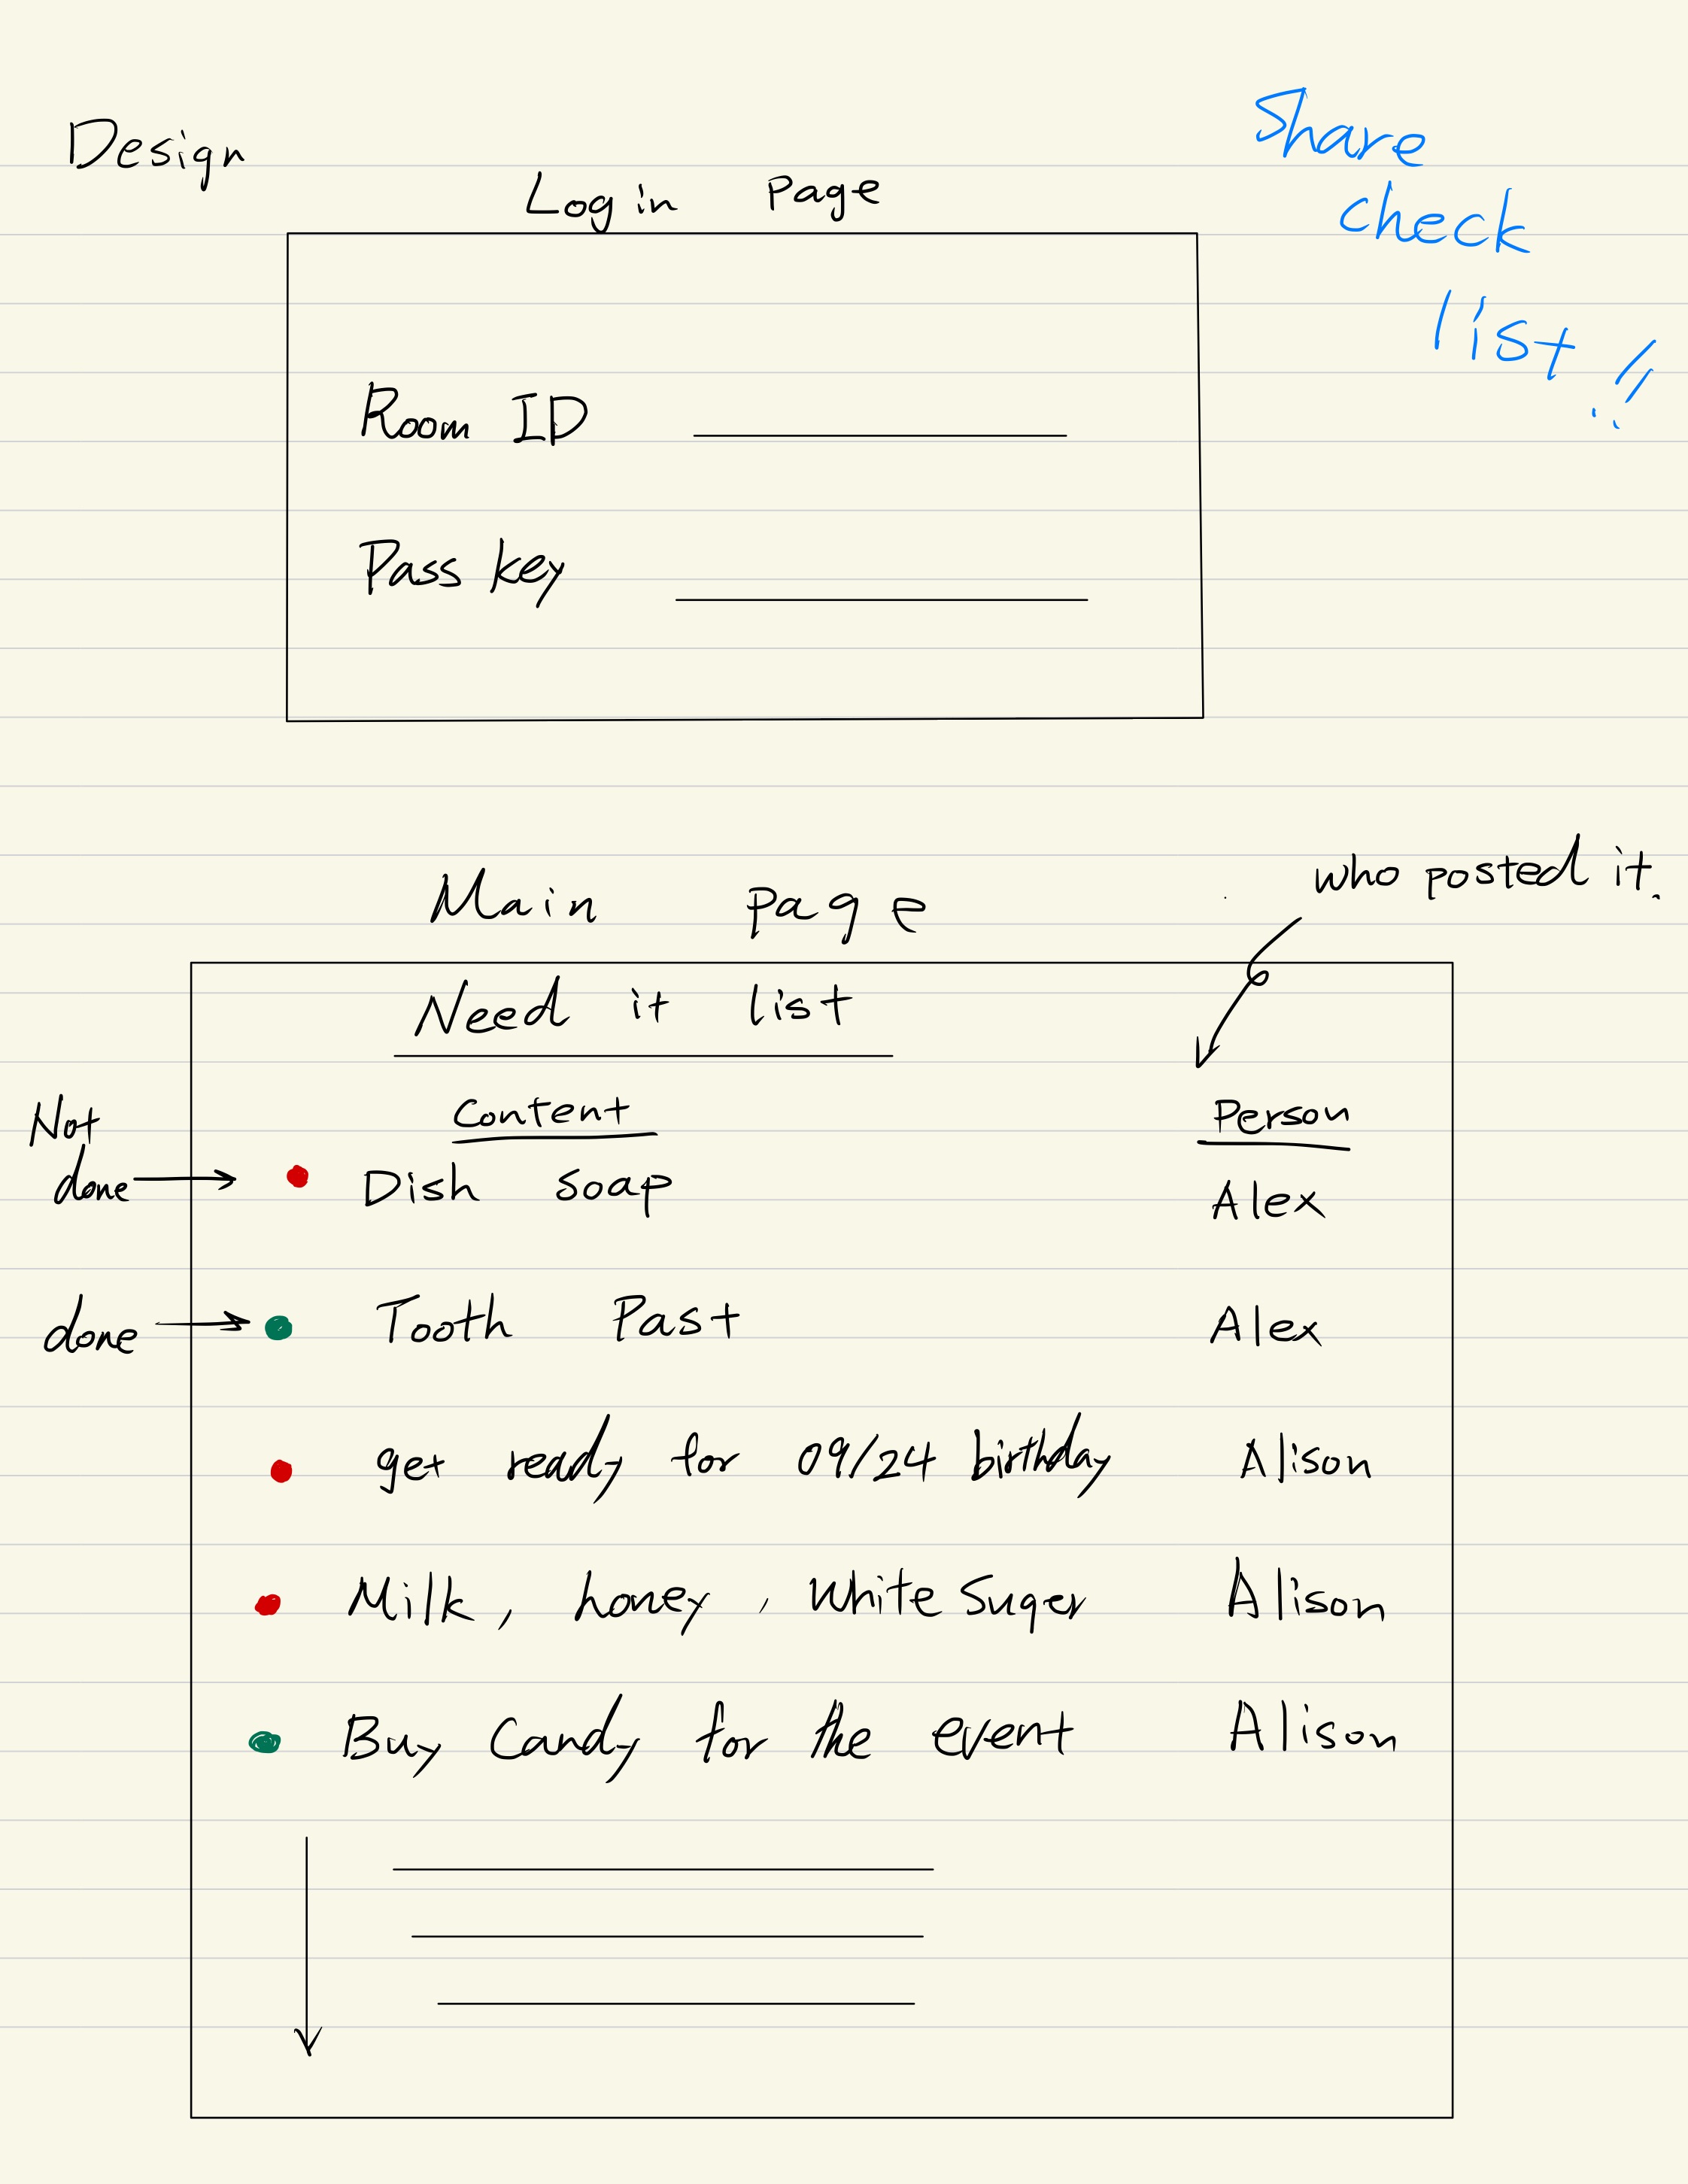 Design
Share
check
list!!
Login Page
Room ID
Pass key
Main page
who posted it.
Need it list
Content
Person
Not
done
Dish soap
Alex
done
Tooth Past
Alex
get ready for 09/24 birthday
Alison
Milk, honey, White Suger
Alison
Buy Candy for the event
Alison